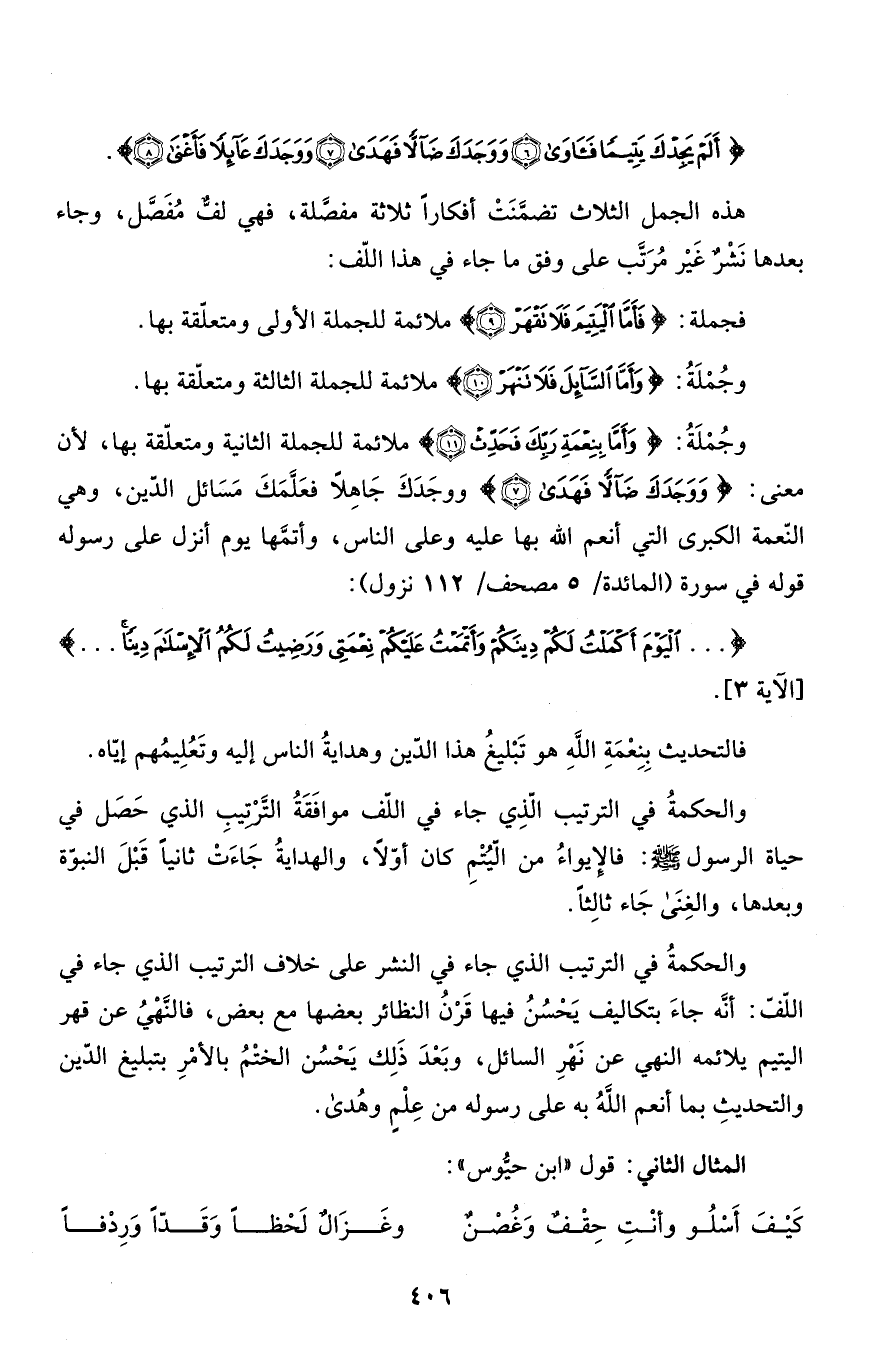 ﴿ أَلَمْ يَجِدْكَ يَتِيمًا فَـَٔاوَىٰ ۝٦ وَوَجَدَكَ ضَآلًّا فَهَدَىٰ ۝٧ وَوَجَدَكَ عَآئِلًا فَأَغْنَىٰ ۝٨ ﴾ .
هذه الجمل الثلاث تضمَّنَتْ أفكاراً ثلاثة مفصَّلة، فهي لفٌّ مُفَصَّل، وجاء
بعدها نَشْرٌ غَيْر مُرَتَّب على وفق ما جاء في هذا اللّف:
فجملة: ﴿ فَأَمَّا ٱلْيَتِيمَ فَلَا تَقْهَرْ ۝٩ ﴾ ملائمة للجملة الأولى ومتعلّقة بها.
وجُمْلَةُ: ﴿ وَأَمَّا ٱلسَّآئِلَ فَلَا تَنْهَرْ ۝١٠ ﴾ ملائمة للجملة الثالثة ومتعلّقة بها.
وجُمْلَةُ: ﴿ وَأَمَّا بِنِعْمَةِ رَبِّكَ فَحَدِّثْ ۝١١ ﴾ ملائمة للجملة الثانية ومتعلّقة بها، لأن
معنى: ﴿ وَوَجَدَكَ ضَآلًّا فَهَدَىٰ ۝٧ ﴾ ووجَدَكَ جَاهِلاً فعَلَّمَكَ مَسَائل الدّين، وهي
النّعمة الكبرى التي أنعم الله بها عليه وعلى الناس، وأتمَّها يوم أنزل على رسوله
قوله في سورة (المائدة/ ٥ مصحف/ ١١٢ نزول):
﴿ . . . ٱلْيَوْمَ أَكْمَلْتُ لَكُمْ دِينَكُمْ وَأَتْمَمْتُ عَلَيْكُمْ نِعْمَتِى وَرَضِيتُ لَكُمُ ٱلْإِسْلَٰمَ دِينًا ۚ . . . ﴾
[الآية ٣].
فالتحديث بِنِعْمَةِ اللَّهِ هو تَبْليغُ هذا الدّين وهدايةُ الناس إليه وتَعُلِيمُهم إيّاه.
والحكمةُ في الترتيب الّذِي جاء في اللّف موافَقَةُ التَّرْتِيبِ الذي حَصَل في
حياة الرسول ﷺ: فالإِيواءُ من الْيُتْمِ كان أوّلاً، والهدايةُ جَاءَتْ ثانياً قَبْلَ النبوّة
وبعدها، والغِنَىٰ جَاء ثالِثاً.
والحكمةُ في الترتيب الذي جاء في النشر على خلاف الترتيب الذي جاء في
اللّفّ: أنَّه جاءَ بتكاليف يَحْسُنُ فيها قَرْنُ النظائر بعضها مع بعض، فالنَّهْيُ عن قهر
اليتيم يلائمه النهي عن نَهْرِ السائل، وبَعْدَ ذَلِك يَحْسُن الختْمُ بالأمْرِ بتبليغ الدّين
والتحديثِ بما أنعم اللَّهُ به على رسوله من عِلْمٍ وهُدىٰ.
المثال الثاني: قول «ابن حيُّوس»:
كَيْـفَ أَسْلُـو وأنْـتِ حِقْـفٌ وَغُصْـنٌ وغَـــزَالٌ لَحْظــــاً وَقَـــدّاً وَرِدْفــــاً
٤٠٦